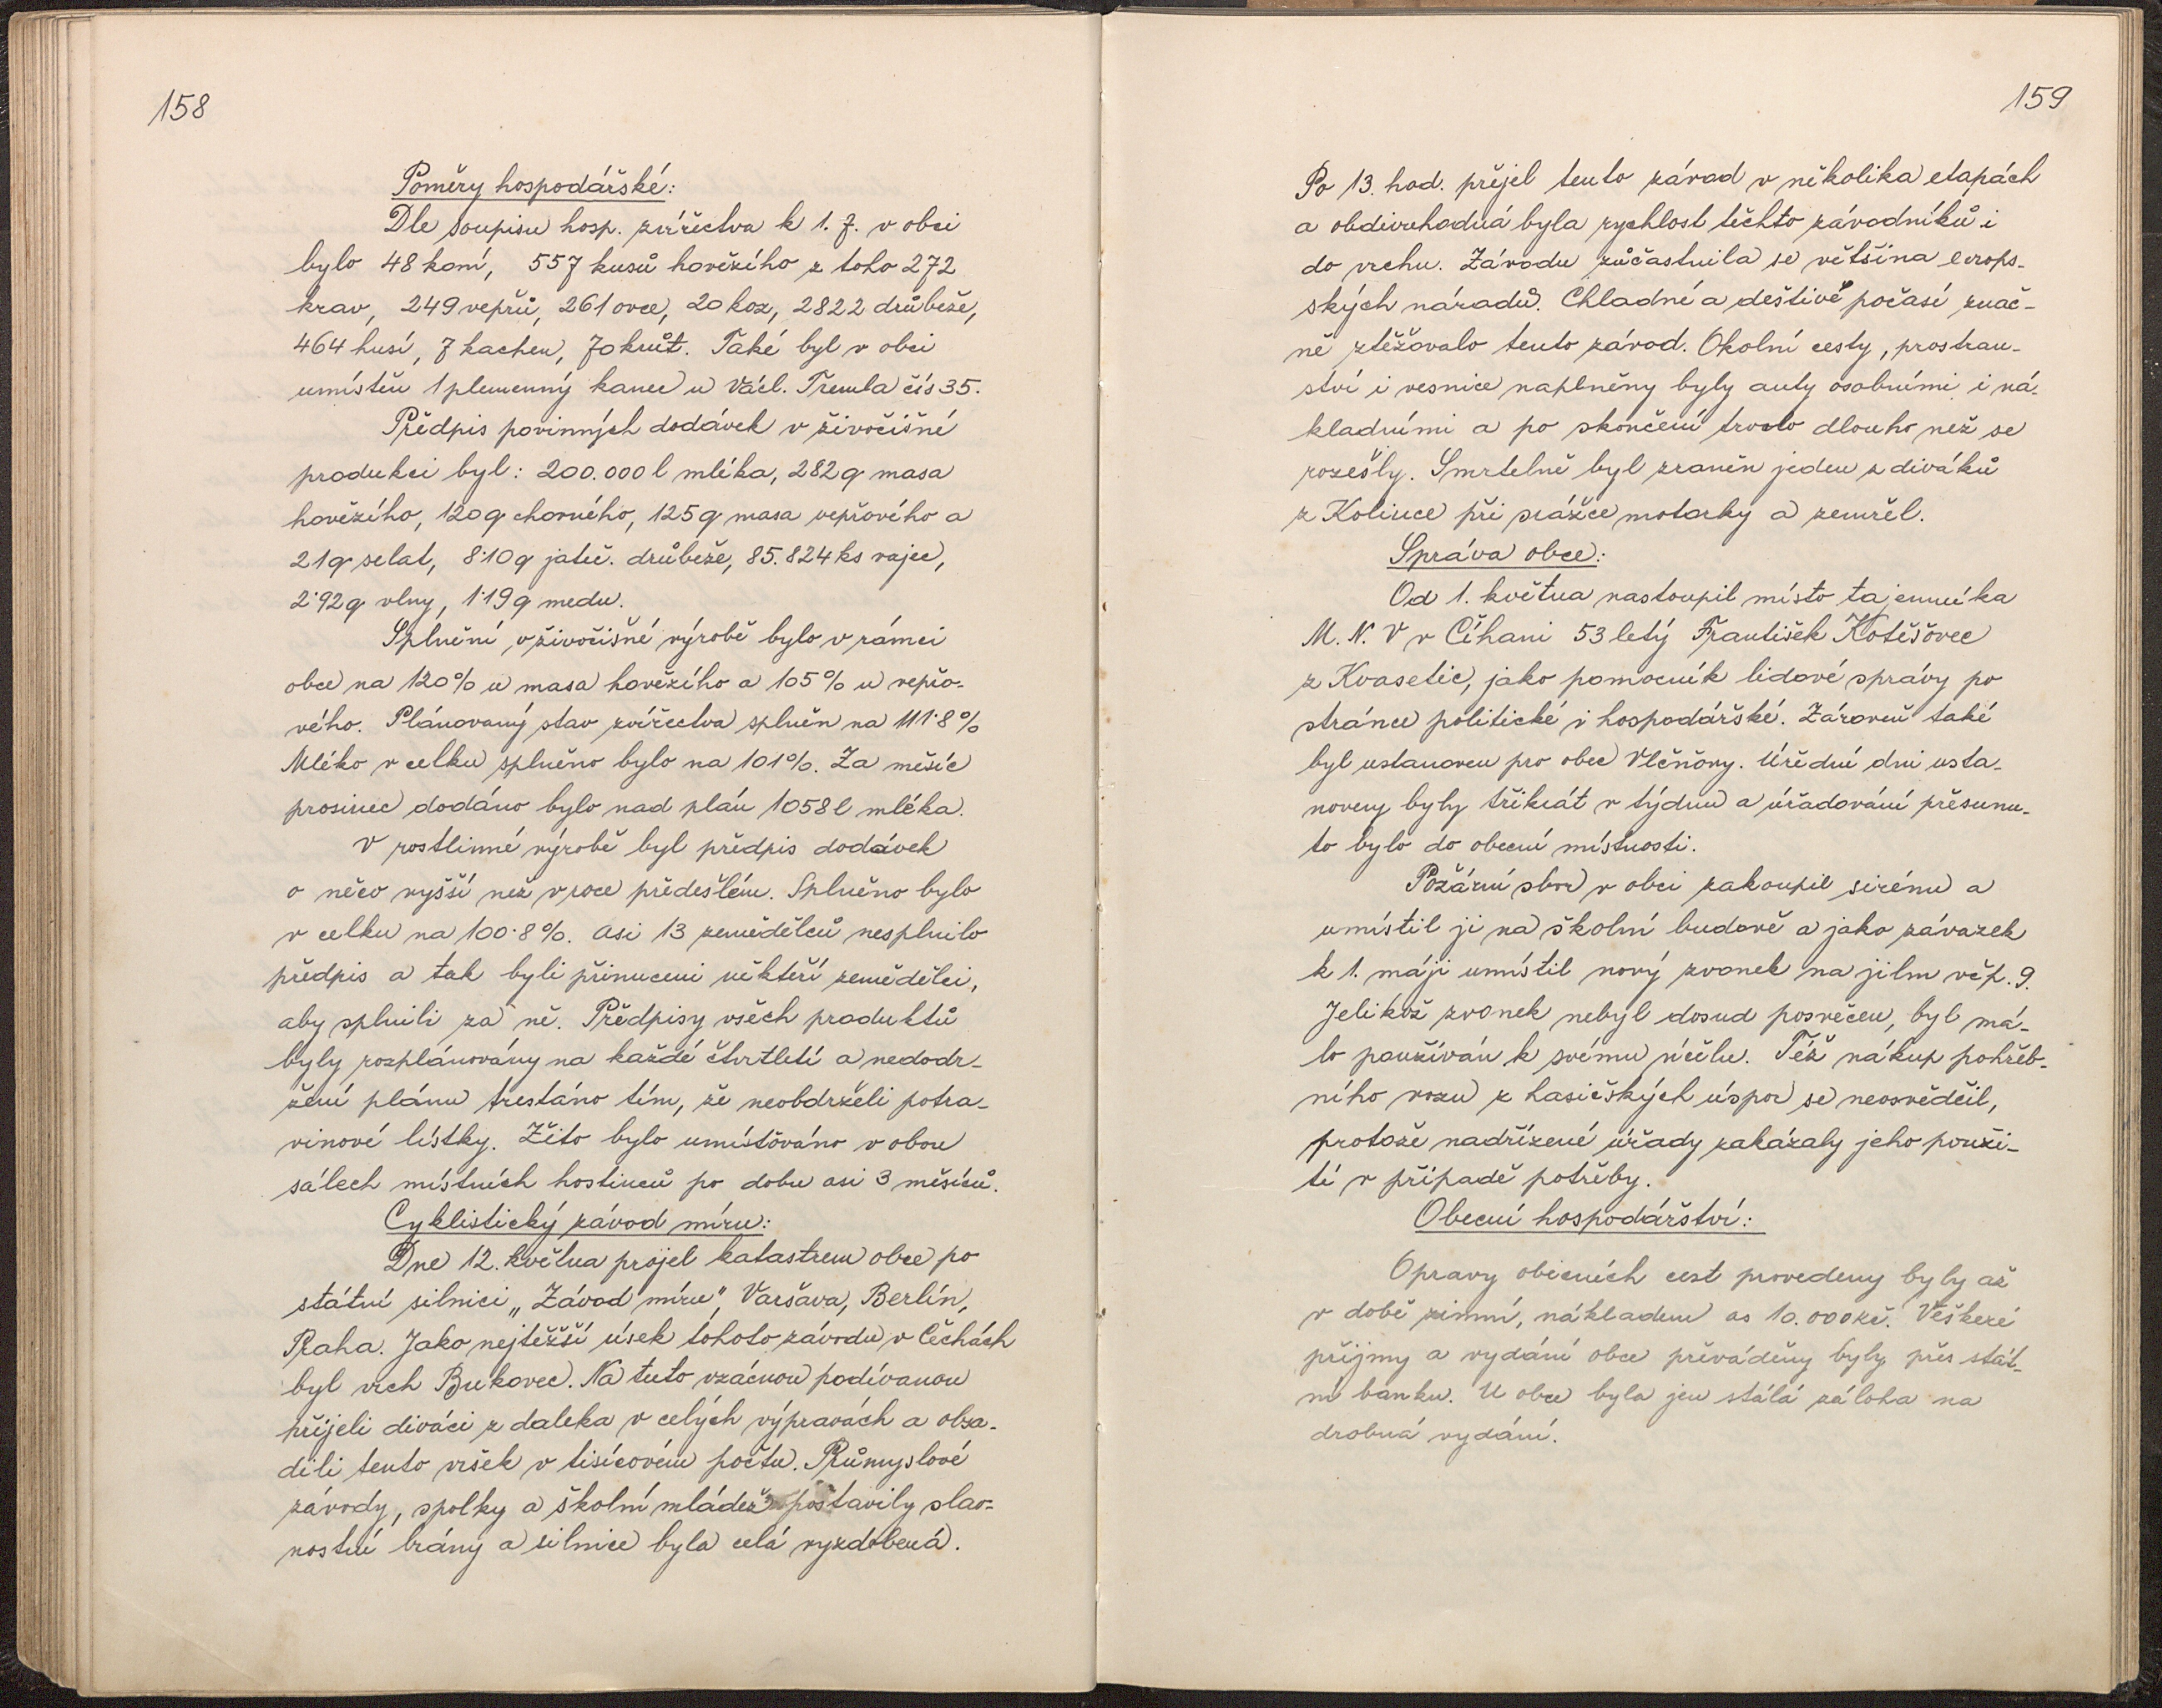 158
Poměry hospodářské:
Dle soupisu hosp. zvířectva k 1. 7. v obci
bylo 48 koní, 557 kusů hovězího z toho 272
krav, 249 vepřů, 261 ovce, 20 koz, 2822 drůbeže,
464 husí, 7 kachen, 70 krůt. Také byl v obci
umístěn 1 plemenný kanec u Václ. Tremla čís 35.
Předpis povinných dodávek v živočišné
produkci byl: 200.000 l mléka, 282 q masa
hovězího, 120 q chovného, 125 q masa vepřového a
21 q selat, 8·10 q jateč. drůbeže, 85.824 ks vajec,
2·92 q vlny, 1·19 q medu.
Splnění v živočišné výrobě bylo v rámci
obce na 120% u masa hovězího a 105% u vepřo-
vého. Plánovaný stav zvířectva splněn na 111·8%
Mléko v celku splněno bylo na 101%. Za měsíc
prosinec dodáno bylo nad plán 1058 l mléka.
V rostlinné výrobě byl předpis dodávek
o něco vyšší než v roce předešlém. Splněno bylo
v celku na 100·8%. Asi 13 zemědělců nesplnilo
předpis a tak byli přinuceni někteří zemědělci,
aby splnili za ně. Předpisy všech produktů
byly rozplánovány na každé čtvrtletí a nedodr-
žení plánu trestáno tím, že neobdrželi potra-
vinové lístky. Žito bylo umístěváno v obou
sálech místních hostinců po dobu asi 3 měsíců.
Cyklistický závod míru:
Dne 12. května projel katastrem obce po
státní silnici „Závod míru", Varšava, Berlín,
Praha. Jako nejtěžší úsek tohoto závodu v Čechách
byl vrch Bukovec. Na tuto vzácnou podívanou
přijeli diváci z daleka v celých výpravách a obsa-
dili tento vršek v tisícovém počtu. Průmyslové
závody, spolky a školní mládež postavily slav-
nostní brány a silnice byla celá vyzdobená.
159
Po 13. hod. přejel tento závod v několika etapách
a obdivuhodná byla rychlost těchto závodníků i
do vrchu. Závodu zůčastnila se většina evrops-
ských národů. Chladné a deštivé počasí znač-
ně ztěžovalo tento závod. Okolní cesty, prostran-
ství i vesnice naplněny byly auty osobními i ná-
kladními a po skončení trvalo dlouho než se
rozešly. Smrtelně byl zraněn jeden z diváků
z Kolince při srážce motorky a zemřel.
Správa obce:
Od 1. května nastoupil místo tajemníka
M. N. V v Číhani 53 letý František Kotěšovec
z Kvasetic, jako pomocník lidové správy po
stránce politické i hospodářské. Zároveň také
byl ustanoven pro obec Vlčňovy. Úřední dni usta-
noveny byly třikrát v týdnu a úřadování přesunu-
to bylo do obecní místnosti.
Požární sbor v obci zakoupil sirénu a
umístil ji na školní budově a jako závazek
k 1. máji umístil nový zvonek na jilm v čp. 9.
Jelikož zvonek nebyl dosud posvěcen, byl má-
lo používán k svému účelu. Též nákup pohřeb-
ního vozu z hasičských úspor se neosvědčil,
protože nadřízené úřady zakázaly jeho použi-
tí v případě potřeby.
Obecní hospodářství:
Opravy obecních cest provedeny byly až
v době zimní, nákladem as 10.000 Kč. Veškeré
příjmy a vydání obce převáděny byly přes stát-
ní banku. U obce byla jen stálá záloha na
drobná vydání.